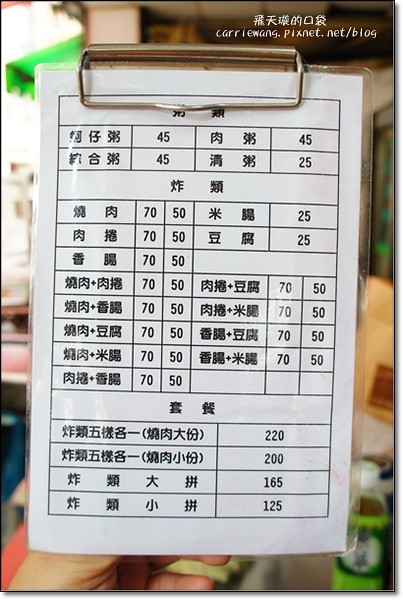 飛天璇的口袋
carriewang.pixnet.net/blog
粥 類
蚵仔粥 45 肉粥 45
綜合粥 45 清粥 25
炸 類
燒肉 70 50 米腸 25
肉捲 70 50 豆腐 25
香腸 70 50
燒肉+肉捲 70 50 肉捲+豆腐 70 50
燒肉+香腸 70 50 肉捲+米腸 70 50
燒肉+豆腐 70 50 香腸+豆腐 70 50
燒肉+米腸 70 50 香腸+米腸 70 50
肉捲+香腸 70 50
套餐
炸類五樣各一(燒肉大份) 220
炸類五樣各一(燒肉小份) 200
炸類大拼 165
炸類小拼 125